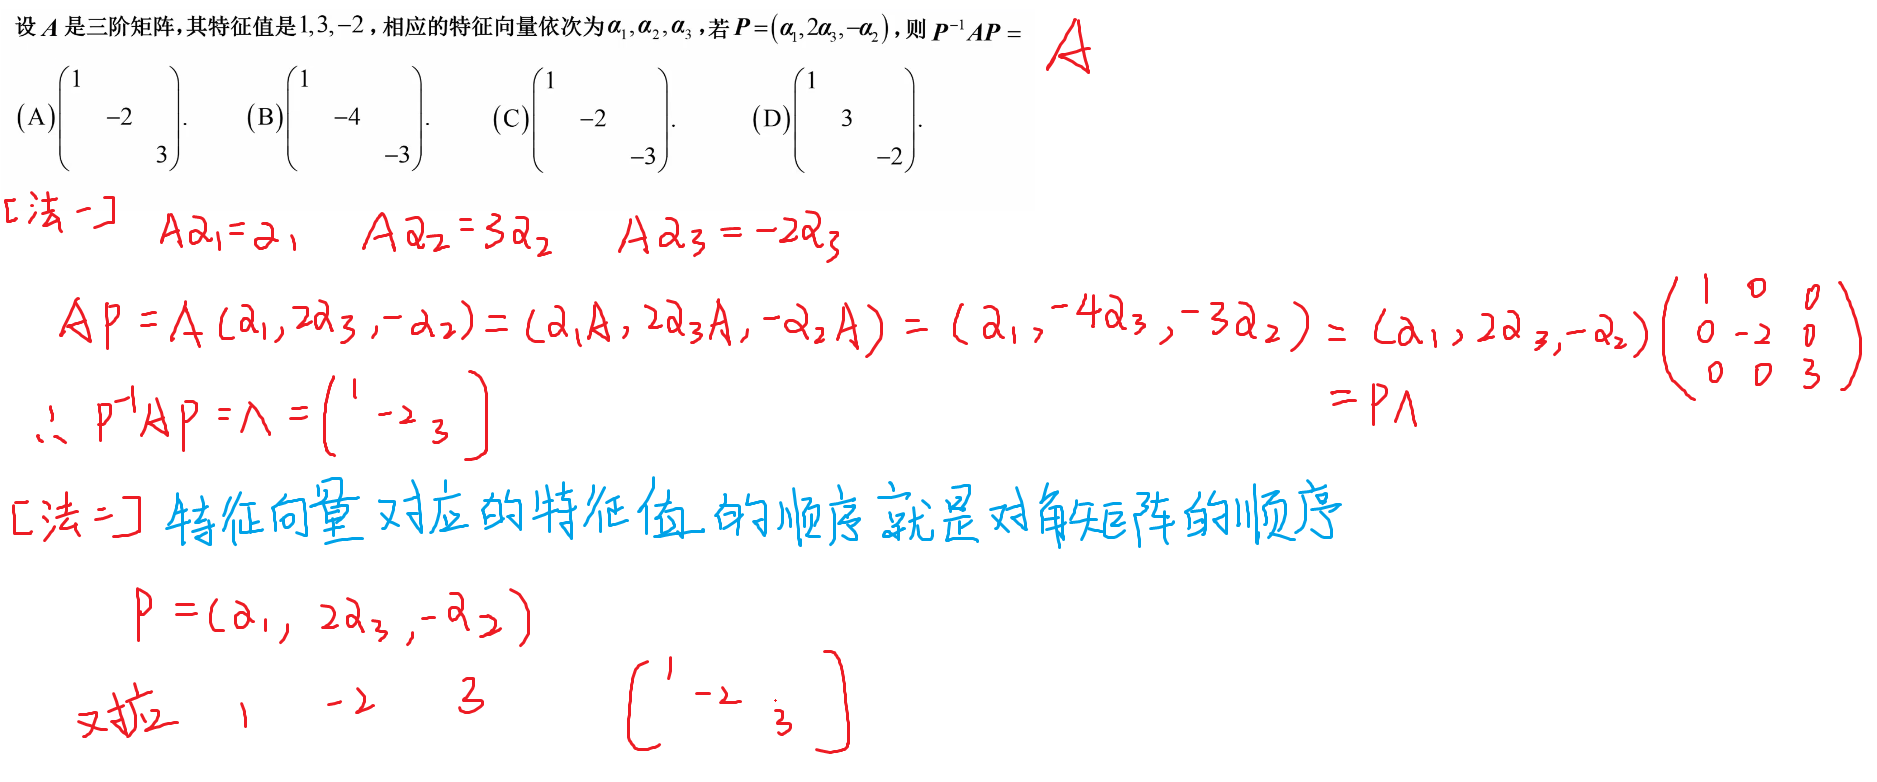 设 A 是三阶矩阵,其特征值是1,3,−2,相应的特征向量依次为α₁,α₂,α₃,若 P=(α₁,2α₃,−α₂),则 P⁻¹AP = A
(A) (1 −2 3). (B) (1 −4 −3). (C) (1 −2 −3). (D) (1 3 −2).
[法一] Aα₁=α₁ Aα₂=3α₂ Aα₃=−2α₃
AP=A(α₁,2α₃,−α₂)=(α₁A,2α₃A,−α₂A)=(α₁,−4α₃,−3α₂)=(α₁,2α₃,−α₂)(1 0 0 0 −2 0 0 0 3)
=PΛ
∴ P⁻¹AP=Λ=(1 −2 3)
[法二] 特征向量对应的特征值的顺序就是对角矩阵的顺序
P=(α₁,2α₃,−α₂)
对应 1 −2 3 [1 −2 3]